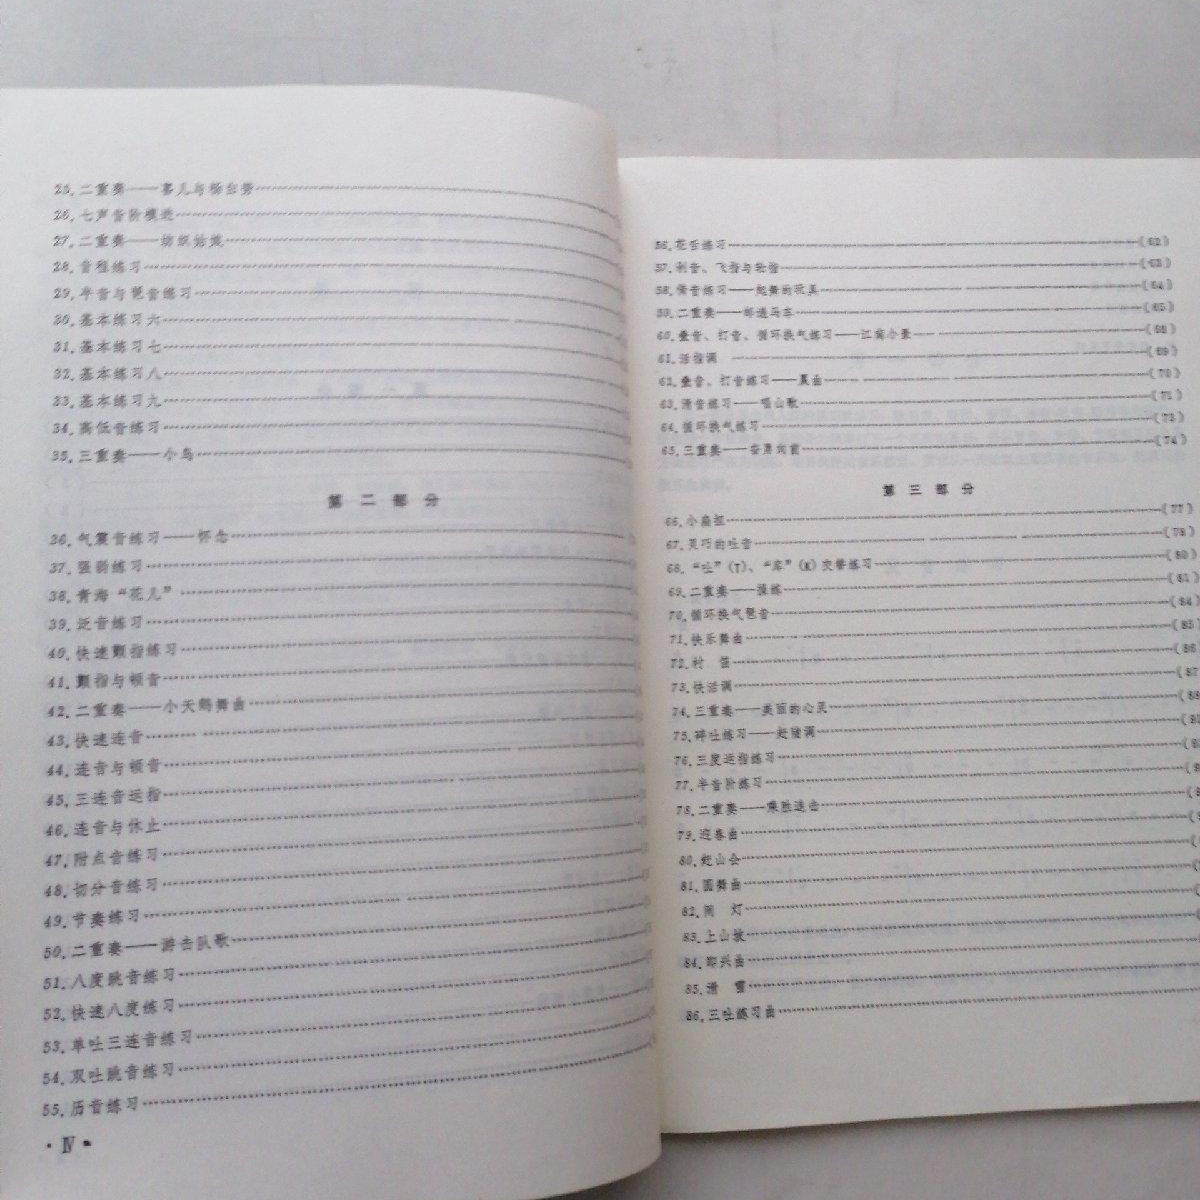 25.二重奏——喜儿与杨白劳
26.七声音阶模进
27.二重奏——纺织姑娘
28.音程练习
29.半音与琶音练习
30.基本练习六
31.基本练习七
32.基本练习八
33.基本练习九
34.高低音练习
35.三重奏——小鸟
第二部分
36.气震音练习——怀念
37.强弱练习
38.青海“花儿”
39.泛音练习
40.快速颤指练习
41.颤指与顿音
42.二重奏——小天鹅舞曲
43.快速连音
44.连音与顿音
45.三连音运指
46.连音与休止
47.附点音练习
48.切分音练习
49.节奏练习
50.二重奏——游击队歌
51.八度跳音练习
52.快速八度练习
53.单吐三连音练习
54.双吐跳音练习
55.历音练习
·Ⅳ·
56.花舌练习(62)
57.剁音、飞指与轮指(63)
58.滑音练习(64)
59.二重奏——邮递马车(65)
60.叠音、打音、循环换气练习——江南小景(68)
61.活指调(69)
62.叠音、打音练习——晨曲(70)
63.滑音练习——唱山歌(71)
64.循环换气练习(73)
65.三重奏——奋勇向前(74)
第三部分
66.小扁担(77)
67.灵巧的吐音(78)
68.“吐”(T)、“库”(K)交替练习(80)
69.二重奏——操练(81)
70.循环换气琶音(84)
71.快乐舞曲(85
72.村 笛(86
73.快活调(87
74.三重奏——美丽的心灵(88
75.碎吐练习——赶牲调
76.三度运指练习
77.半音阶练习
78.二重奏——乘胜追击
79.迎春曲
80.赶山会
81.圆舞曲
82.闹 灯
83.上山坡
84.即兴曲
85.滑 雪
86.三吐练习曲